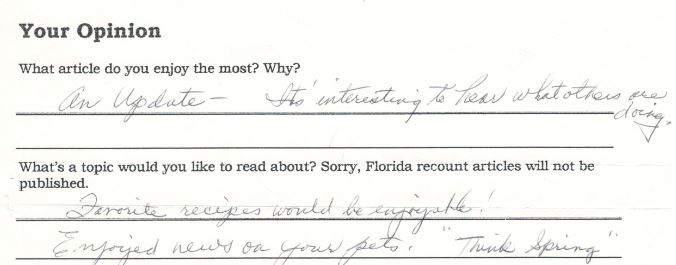 Your Opinion
What article do you enjoy the most? Why?
An Update – Its' interesting to hear what others are
doing.
What's a topic would you like to read about? Sorry, Florida recount articles will not be
published.
Favorite recipes would be enjoyable!
Enjoyed news on your pets. "Think Spring"